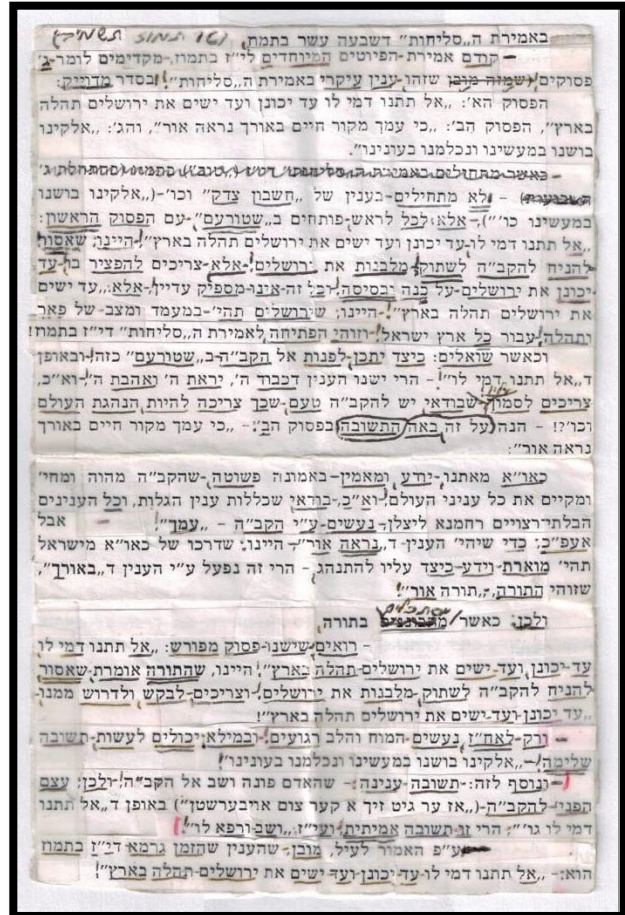 באמירת ה„סליחות" דשבעה עשר בתמוז, תמוז
קודם אמירת הפיוטים המיוחדים לי"ז בתמוז, מקדימים לומר ג'
פסוקים (שמזה מובן שזהו ענין עיקרי באמירת ה„סליחות"!) בסדר מדוייק:
הפסוק הא': „אל תתנו דמי לו עד יכונן ועד ישים את ירושלים תהלה
בארץ", הפסוק הב': „כי עמך מקור חיים באורך נראה אור", והג': „אלקינו
בושנו במעשינו ונכלמנו בעונינו".
כאשר מתחילים באמירת ה„סליחות"
– לא מתחילים בענין של „חשבון צדק" וכו' („אלקינו בושנו
במעשינו כו'"), אלא לכל לראש פותחים ב„שטורעם" עם הפסוק הראשון:
„אל תתנו דמי לו עד יכונן ועד ישים את ירושלים תהלה בארץ"! היינו, שאסור
להניח להקב"ה לשתוק מלבנות את ירושלים! אלא צריכים להפציר בו עד
יכונן את ירושלים על כנה ובסיסה! וכל זה אינו מספיק עדיין! אלא: „עד ישים
את ירושלים תהלה בארץ"! היינו, שירושלים תהי' במעמד ומצב של פאר
ותהלה! עבור כל ארץ ישראל! וזוהי הפתיחה לאמירת ה„סליחות" די"ז בתמוז!
וכאשר שואלים: כיצד יתכן לפנות אל הקב"ה ב„שטורעם" כזה! ובאופן
ד„אל תתנו דמי לו"! – הרי ישנו הענין דכבוד ה', יראת ה' ואהבת ה'! וא"כ,
צריכים לסמוך שבודאי יש להקב"ה טעם שכך צריכה להיות הנהגת העולם
וכו'?! – הנה על זה באה התשובה בפסוק הב': – „כי עמך מקור חיים באורך
נראה אור":
כאו"א מאתנו יודע ומאמין באמונה פשוטה שהקב"ה מהוה ומחי'
ומקיים את כל עניני העולם! וא"כ, בודאי שכללות ענין הגלות, וכל הענינים
הבלתי רצויים רחמנא ליצלן נעשים ע"י הקב"ה – „עמך"! אבל
אעפ"כ: כדי שיהי' הענין ד„נראה אור" היינו, שדרכו של כאו"א מישראל
תהי' מוארת וידע כיצד עליו להתנהג – הרי זה נפעל ע"י הענין ד„באורך",
שזוהי התורה, „תורה אור"!
מסתכלים
ולכן: כאשר מתבוננים בתורה,
רואים שישנו פסוק מפורש: „אל תתנו דמי לו
עד יכונן ועד ישים את ירושלים תהלה בארץ"! היינו, שהתורה אומרת שאסור
להניח להקב"ה לשתוק מלבנות את ירושלים! וצריכים לבקש ולדרוש ממנו
„עד יכונן ועד ישים את ירושלים תהלה בארץ"!
ורק לאח"ז נעשים המוח והלב רגועים! ובמילא יכולים לעשות תשובה
שלימה! – „אלקינו בושנו במעשינו ונכלמנו בעונינו"!
ונוסף לזה: תשובה ענינה: – שהאדם פונה ושב אל הקב"ה! ולכן: עצם
הפני' להקב"ה („אז ער גיט זיך א קער צום אויבערשטן") באופן ד„אל תתנו
דמי לו גו'": הרי זו תשובה אמיתית! ועי"ז: „ושב ורפא לו"!
ע"פ האמור לעיל, מובן, שהענין שהזמן גרמא די"ז בתמוז
הוא: – „אל תתנו דמי לו עד יכונן ועד ישים את ירושלים תהלה בארץ"!